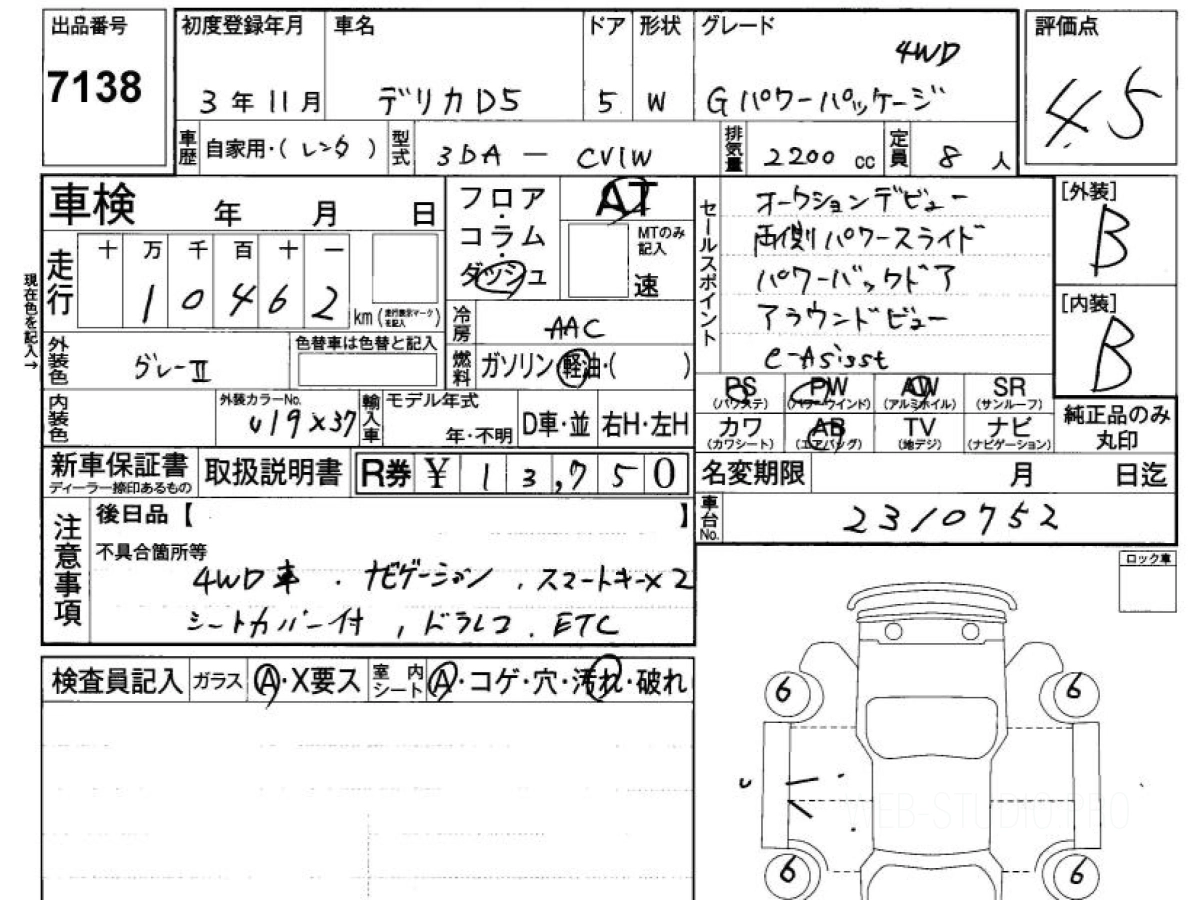 出品番号
7138
初度登録年月 車名 ドア 形状 グレード
4WD
3年11月 デリカD5 5 W Gパワーパッケージ
車歴 自家用・(レンタ) 型式 3DA－CV1W 排気量 2200 cc 定員 8 人
評価点
4.5
車検 年 月 日
現在色を記入→
走行 十 万 千 百 十 一
1 0 4 6 2 km (走行表示マークを記入)
フロア・コラム・ダッシュ
AT
MTのみ記入
速
冷房 AAC
燃料 ガソリン・軽油・( )
外装色 グレーⅡ
色替車は色替と記入
内装色
外装カラーNo.
U19×37
輸入車 モデル年式 年・不明 D車・並 右H・左H
セールスポイント
オークションデビュー
両側パワースライド
パワーバックドア
アラウンドビュー
e-Asisst
PS (パワステ) PW (パワーウインド) AW (アルミホイル) SR (サンルーフ)
カワ (カワシート) AB (エアバッグ) TV (地デジ) ナビ (ナビゲーション)
[外装]
B
[内装]
B
純正品のみ丸印
新車保証書 ディーラー捺印あるもの 取扱説明書 R券 ¥ 13,750
名変期限 月 日迄
車台No. 2310752
注意事項
後日品【 】
不具合箇所等
4WD車 . ナビゲーション . スマートキー×2
シートカバー付 , ドラレコ . ETC
ロック車
検査員記入 ガラス A・X要ス 室内シート A・コゲ・穴・汚れ・破れ
6 6
6 6
WEB-STUDIO.PRO